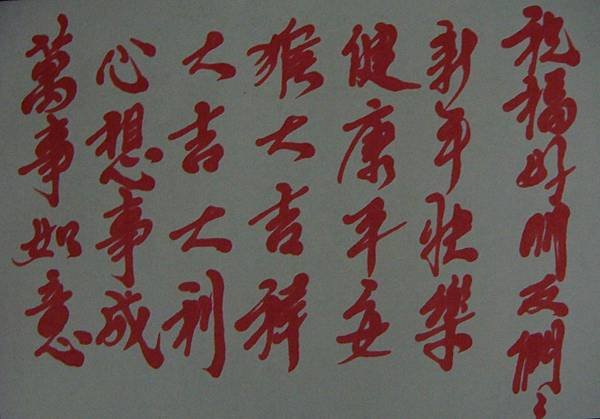 祝福好朋友們：
新年快樂
健康平安
猴大吉祥
大吉大利
心想事成
萬事如意